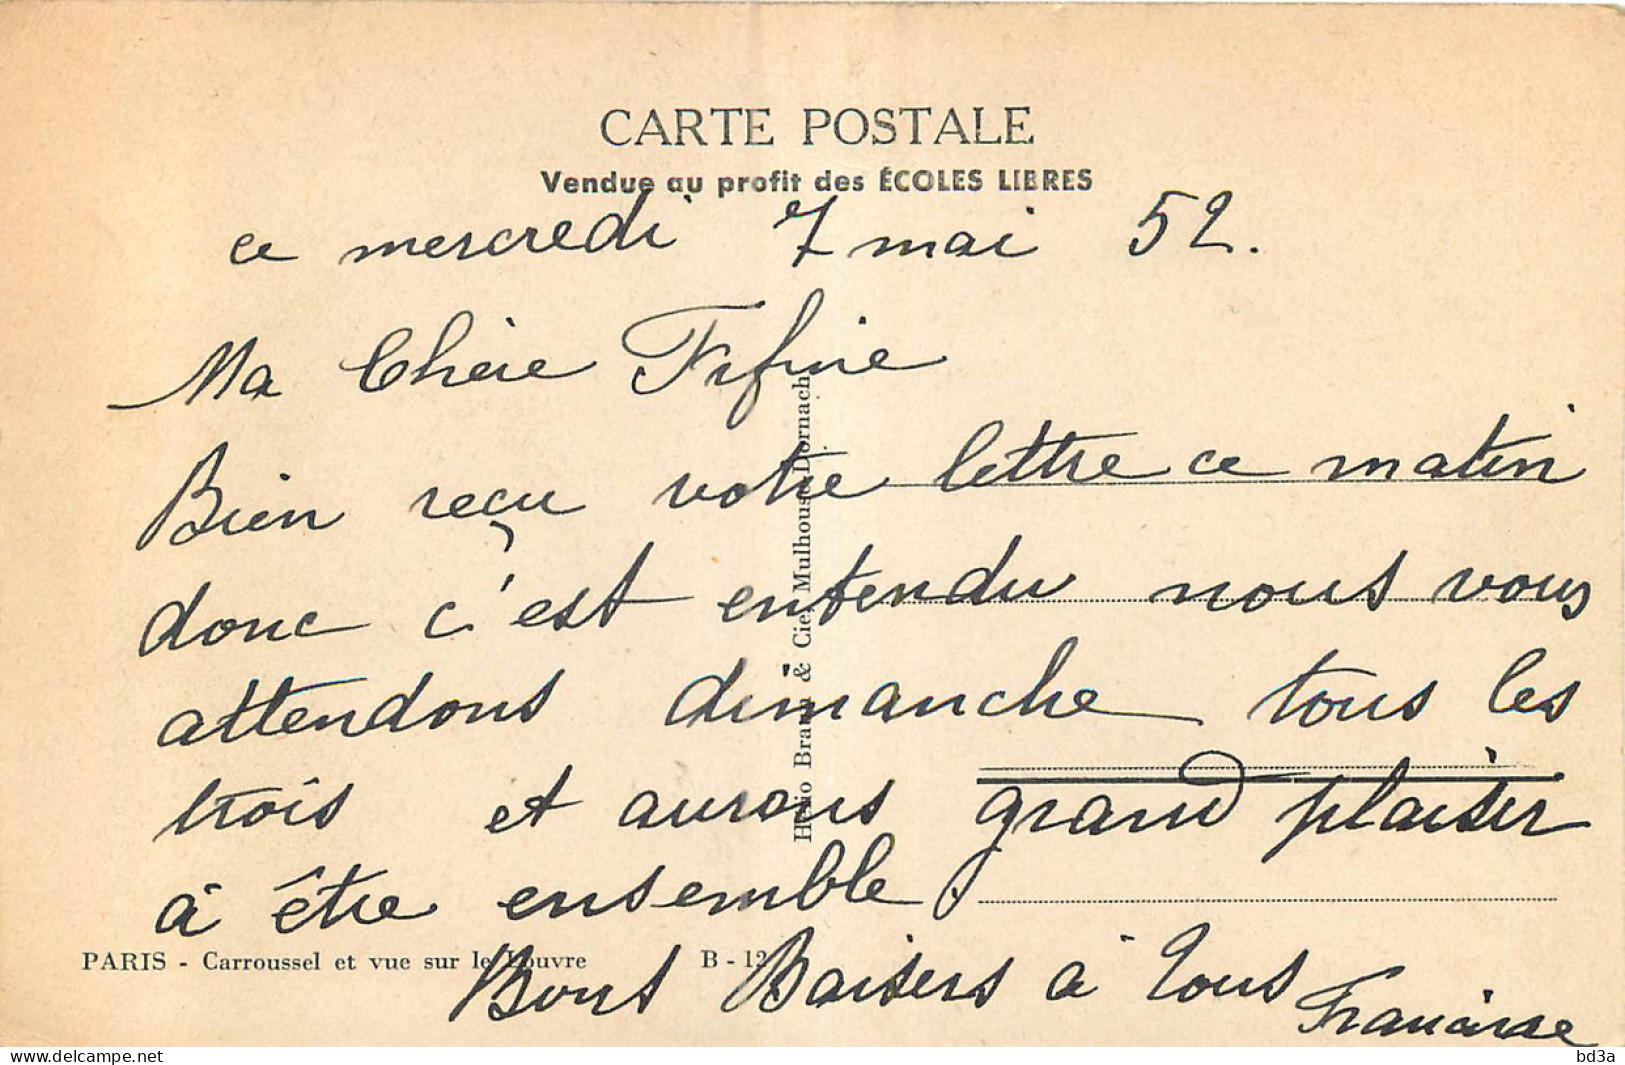 CARTE POSTALE
Vendue au profit des ÉCOLES LIBRES
ce mercredi 7 mai 52.
Ma Chère Fifine
Bien reçu votre lettre ce matin
donc c'est entendu nous vous
attendons dimanche tous les
trois et aurons grand plaisir
à être ensemble
PARIS - Carroussel et vue sur le Louvre B - 12
Bons Baisers à tous
Françoise
Hélio Braun & Cie, Mulhouse-Dornach
bd3a